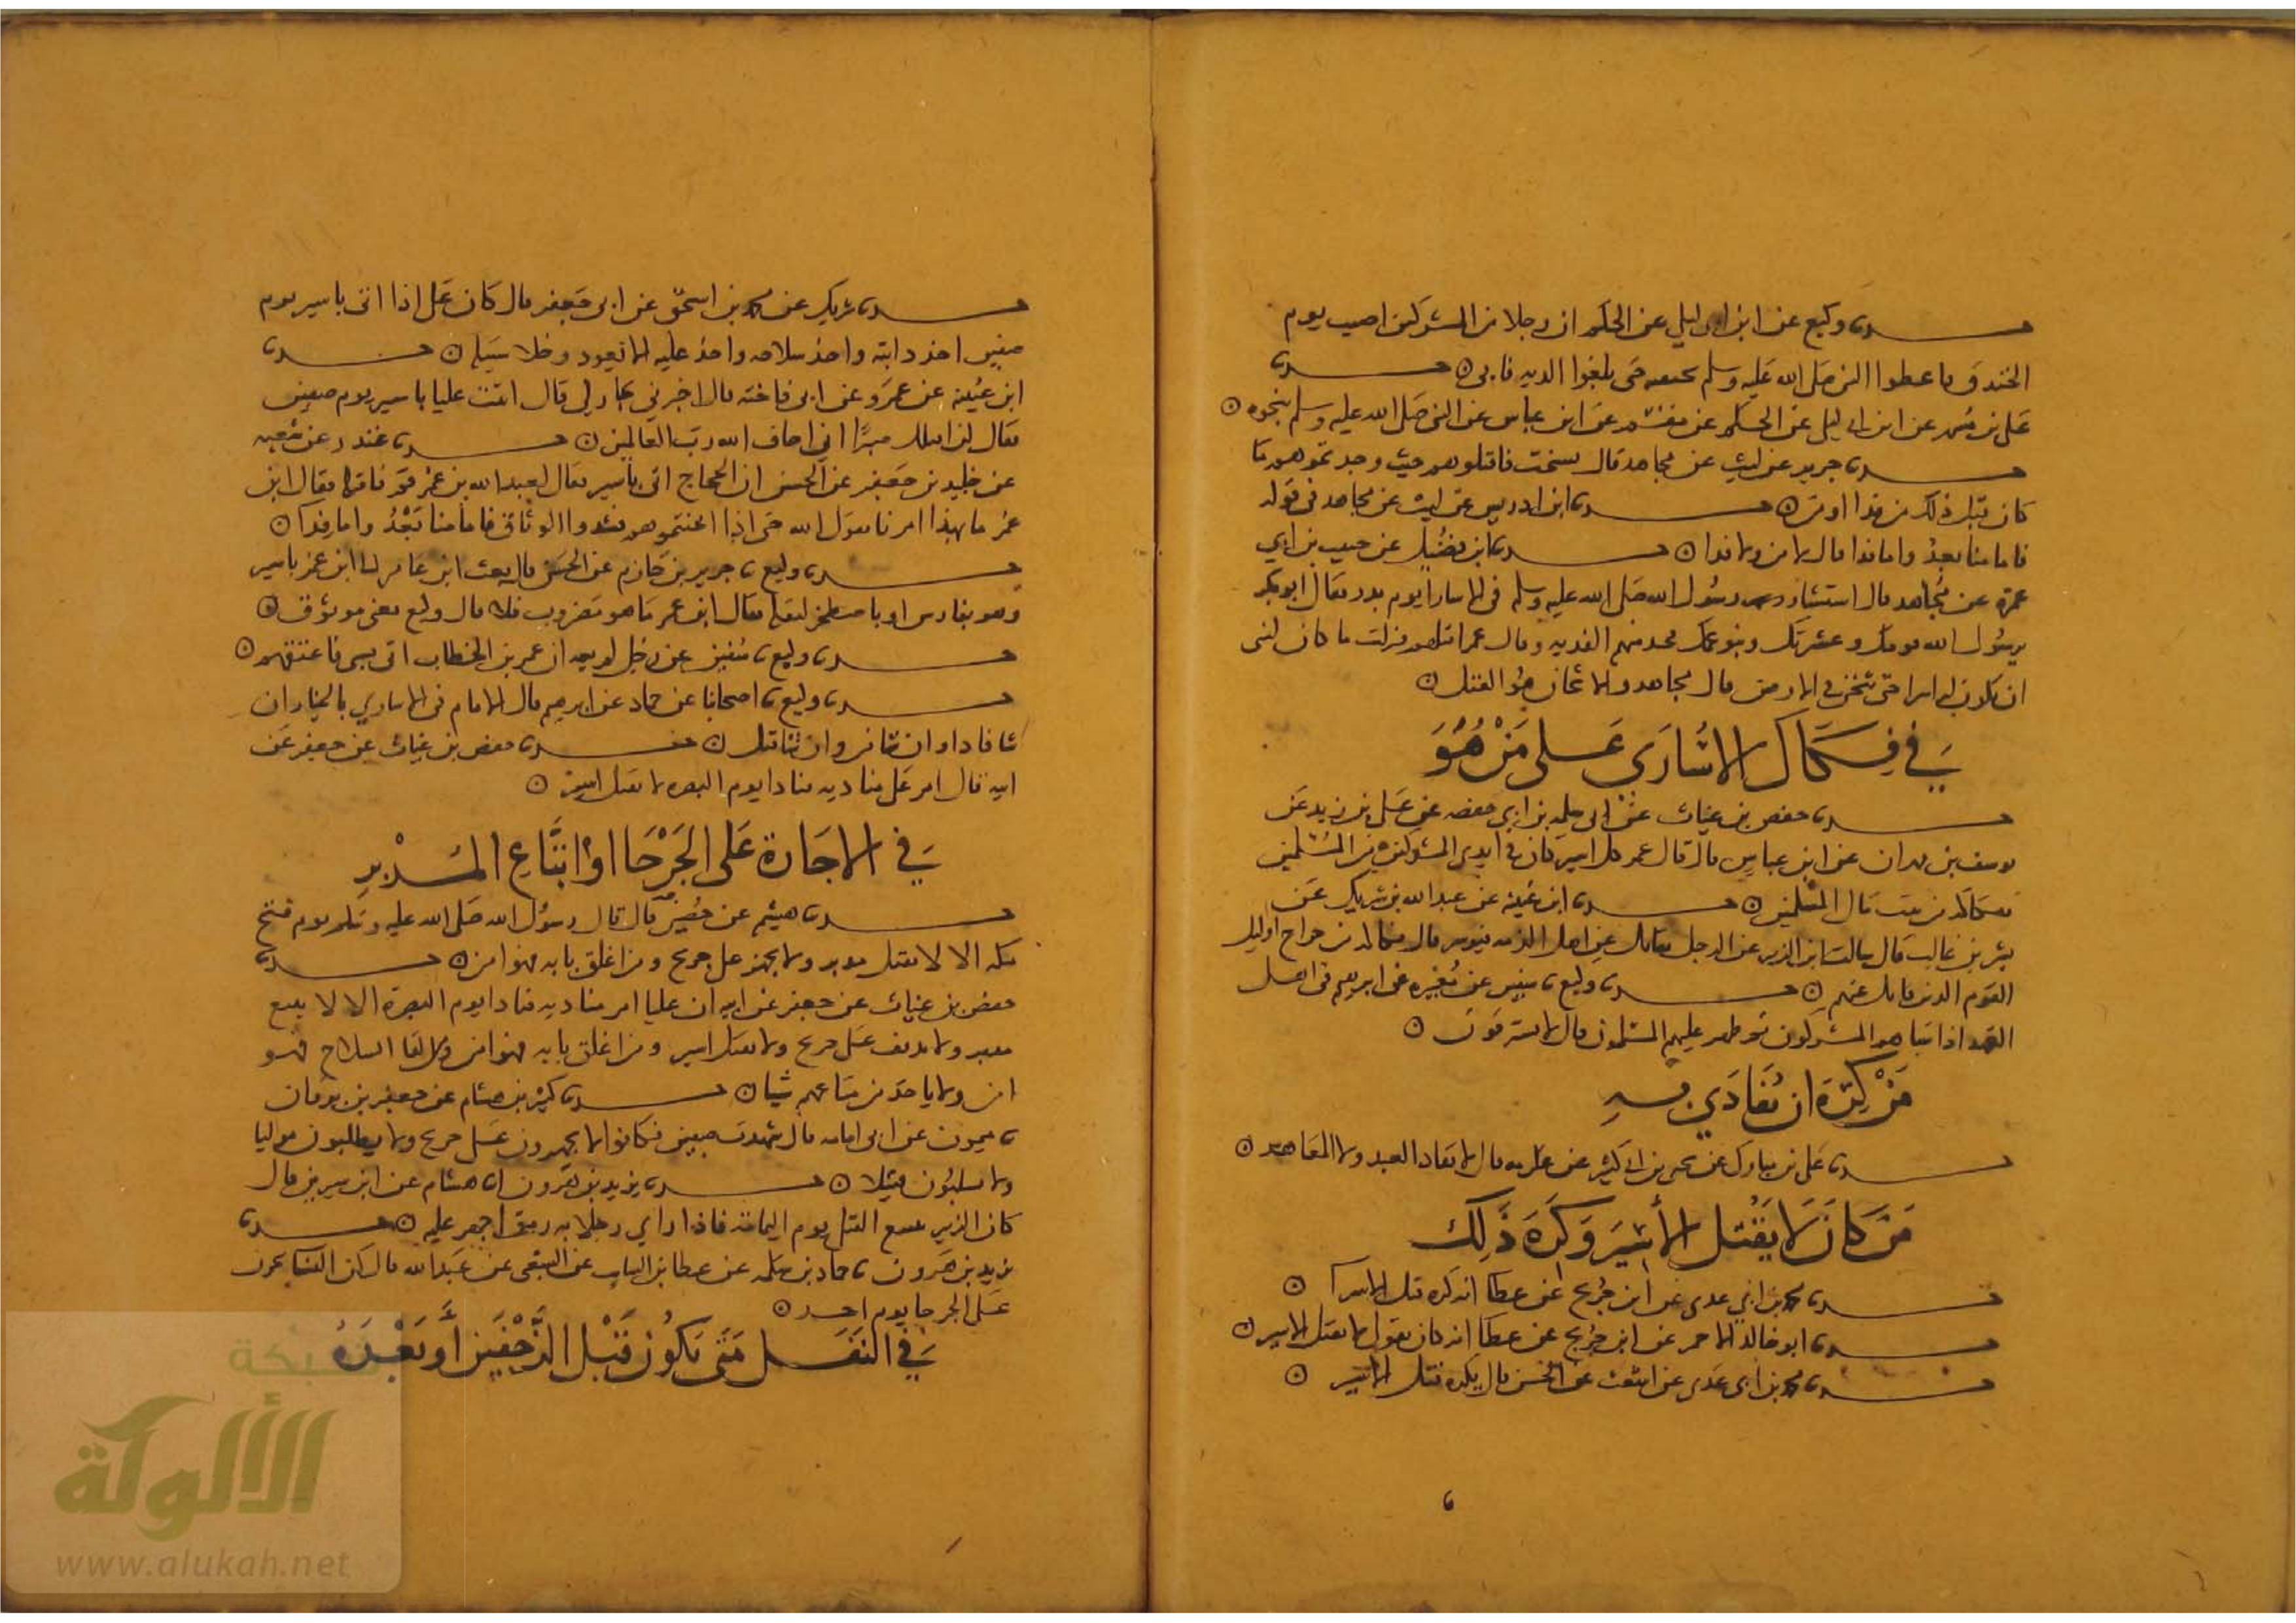 حدثنا وكيع عن ابن ابي ليلي عن الحكم ان رجلا من المشركين اصيب يوم
الخندق فاعطوا النبي صلى الله عليه وسلم بجيفته حتى بلغوا الديه فابى ⊙ حدثنا
علي بن مسهر عن ابن ابي ليلى عن الحكم عن مقسم عن ابن عباس عن النبي صلى الله عليه وسلم بنحوه ⊙
حدثنا جرير عن ليث عن مجاهد قال نسخت فاقتلوهم حيث وجدتموهم ما
كان قبل ذلك من فدا او من ⊙ حدثنا ابن ادريس عن ليث عن مجاهد في قوله
فاما منا بعد واما فدا قال لا من ولا فدا ⊙ حدثنا ابن فضيل عن حبيب بن ابي
عمرة عن مجاهد قال استشار رسول الله صلى الله عليه وسلم في الاسارا يوم بدر فقال ابو بكر
يرسول الله قومك وعشرتك وبنو عمك فخذ منهم الفديه وقال عمر اقتلهم فنزلت ما كان لنبي
ان يكون له اسرا حتى يثخن في الارض قال مجاهد والاثخان هو القتل ⊙
في فكاك الاسارى على من هو
حدثنا حفص بن غياث عن ابي سلمه بن ابي حفصه عن علي بن زيد عن
يوسف بن مهران عن ابن عباس قال قال عمر كل اسير كان في ايدي المشركين من المسلمين
ففكاكه من بيت مال المسلمين ⊙ حدثنا ابن عيينه عن عبد الله بن شريك عن
بشر بن غالب قال سالت ابن الزبير عن الرجل يقاتل عن اهل الذمه فيوسر قال فكاكه من خراج اوليك
القوم الذين قاتل عنهم ⊙ حدثنا وكيع ثنا سفين عن مغيره عن ابرهيم في اهل
العهد اذا سباهم المشركون ثم ظهر عليهم المسلمون قال لا يسترقون ⊙
من كره ان يفادي به
حدثنا علي بن مبارك عن يحيى بن ابي كثير عن عكرمه قال لا يفاد العبد ولا المعاهد ⊙
من كان لا يقتل الأسير وكره ذلك
حدثنا محمد بن ابي عدي عن ابن جريج عن عطا انه كره قتل الاسرا ⊙
حدثنا ابو خالد الاحمر عن ابن جريج عن عطا انه كان يقول لا يقتل الاسير ⊙
حدثنا محمد بن ابي عدي عن اشعث عن الحسن قال يكره قتل الاسير ⊙
حدثنا شريك عن محمد بن اسحق عن ابي جعفر قال كان علي اذا اتى باسير يوم
صفين اخذ دابته واخذ سلاحه واخذ عليه الا يعود وخلا سبيله ⊙ حدثنا
ابن عيينه عن عمرو عن ابي فاخته قال اخبرني جار لي قال اتيت عليا باسير يوم صفين
فقال لن اقتلك صبرا اني اخاف الله رب العالمين ⊙ حدثنا غندر عن شعبه
عن خليد بن جعفر عن الحسن ان الحجاج اتى باسير فقال لعبد الله بن عمر قم فاقتله فقال ابن
عمر ما بهذا امرنا يقول الله حتى اذا اثخنتموهم فشدوا الوثاق فاما منا بعد واما فدا ⊙
حدثنا وكيع ثنا جرير بن حازم عن الحسن قال بعث ابن عامر الى ابن عمر باسير
وهو بفارس او باصطخر ليقتله فقال ابن عمر اما وهو مصرور فلا قال وكيع يعني موثوق ⊙
حدثنا وكيع ثنا سفين عن رجل لم يسمه ان عمر بن الخطاب اتى بسبي فاعتقهم ⊙
حدثنا وكيع ثنا اصحابنا عن حماد عن ابرهيم قال الامام في الاساري بالخيار ان
شا فادا وان شا من وان شا قتل ⊙ حدثنا حفص بن غياث عن جعفر عن
ابيه قال امر علي مناديه فنادا يوم البصره لا يقتل اسير ⊙
في الاجازة على الجرحا او اتباع المدبر
حدثنا هشيم عن حصين قال قال رسول الله صلى الله عليه وسلم يوم فتح
مكه الا لا يقتل مدبر ولا يجهز على جريح ومن اغلق بابه فهو امن ⊙ حدثنا
حفص بن غياث عن جعفر عن ابيه ان عليا امر مناديه فنادا يوم البصرة الا لا يتبع
مدبر ولا يذفف على جريح ولا يقتل اسير ومن اغلق بابه فهو امن ومن القا السلاح فهو
امن ولا ياخذ من متاعهم شيا ⊙ حدثنا كثير بن هشام عن جعفر بن برقان
ثنا ميمون عن ابي امامه قال شهدت صفين فكانوا لا يجهزون على جريح ولا يطلبون موليا
ولا يسلبون قتيلا ⊙ حدثنا يزيد بن هرون انا هشام عن ابن سيرين قال
كان الزبير يتبع القتلى يوم اليمامة فاذا راي رجلا به رمق اجهز عليه ⊙ حدثنا
يزيد بن هرون ثنا حماد بن سلمه عن عطا بن السايب عن الشعبي عن عبد الله قال كن النسا يجزن
على الجرحا يوم احد ⊙
في النفل متى يكون قبل الزحفين أو بعده
شبكة
الألوكة
www.alukah.net